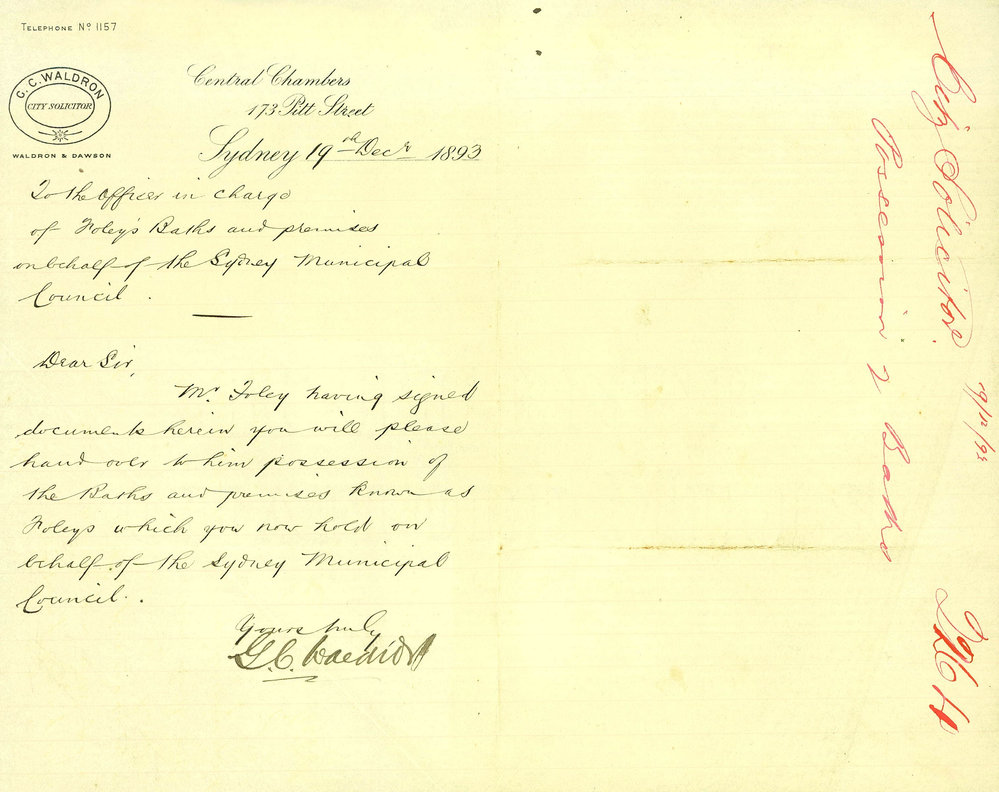 TELEPHONE No. 1157
G. C. WALDRON
CITY SOLICITOR
WALDRON & DAWSON
Central Chambers
173 Pitt Street
Sydney 19th Decr 1893
To the Officer in charge
of Foley's Baths and premises
on behalf of the Sydney Municipal
Council.
Dear Sir,
Mr Foley having signed
documents herein you will please
hand over to him possession of
the Baths and premises known as
Foleys which you now hold on
behalf of the Sydney Municipal
Council.
Yours truly
G. C. Waldron
City Solicitor
19/12/93
Possession of Baths